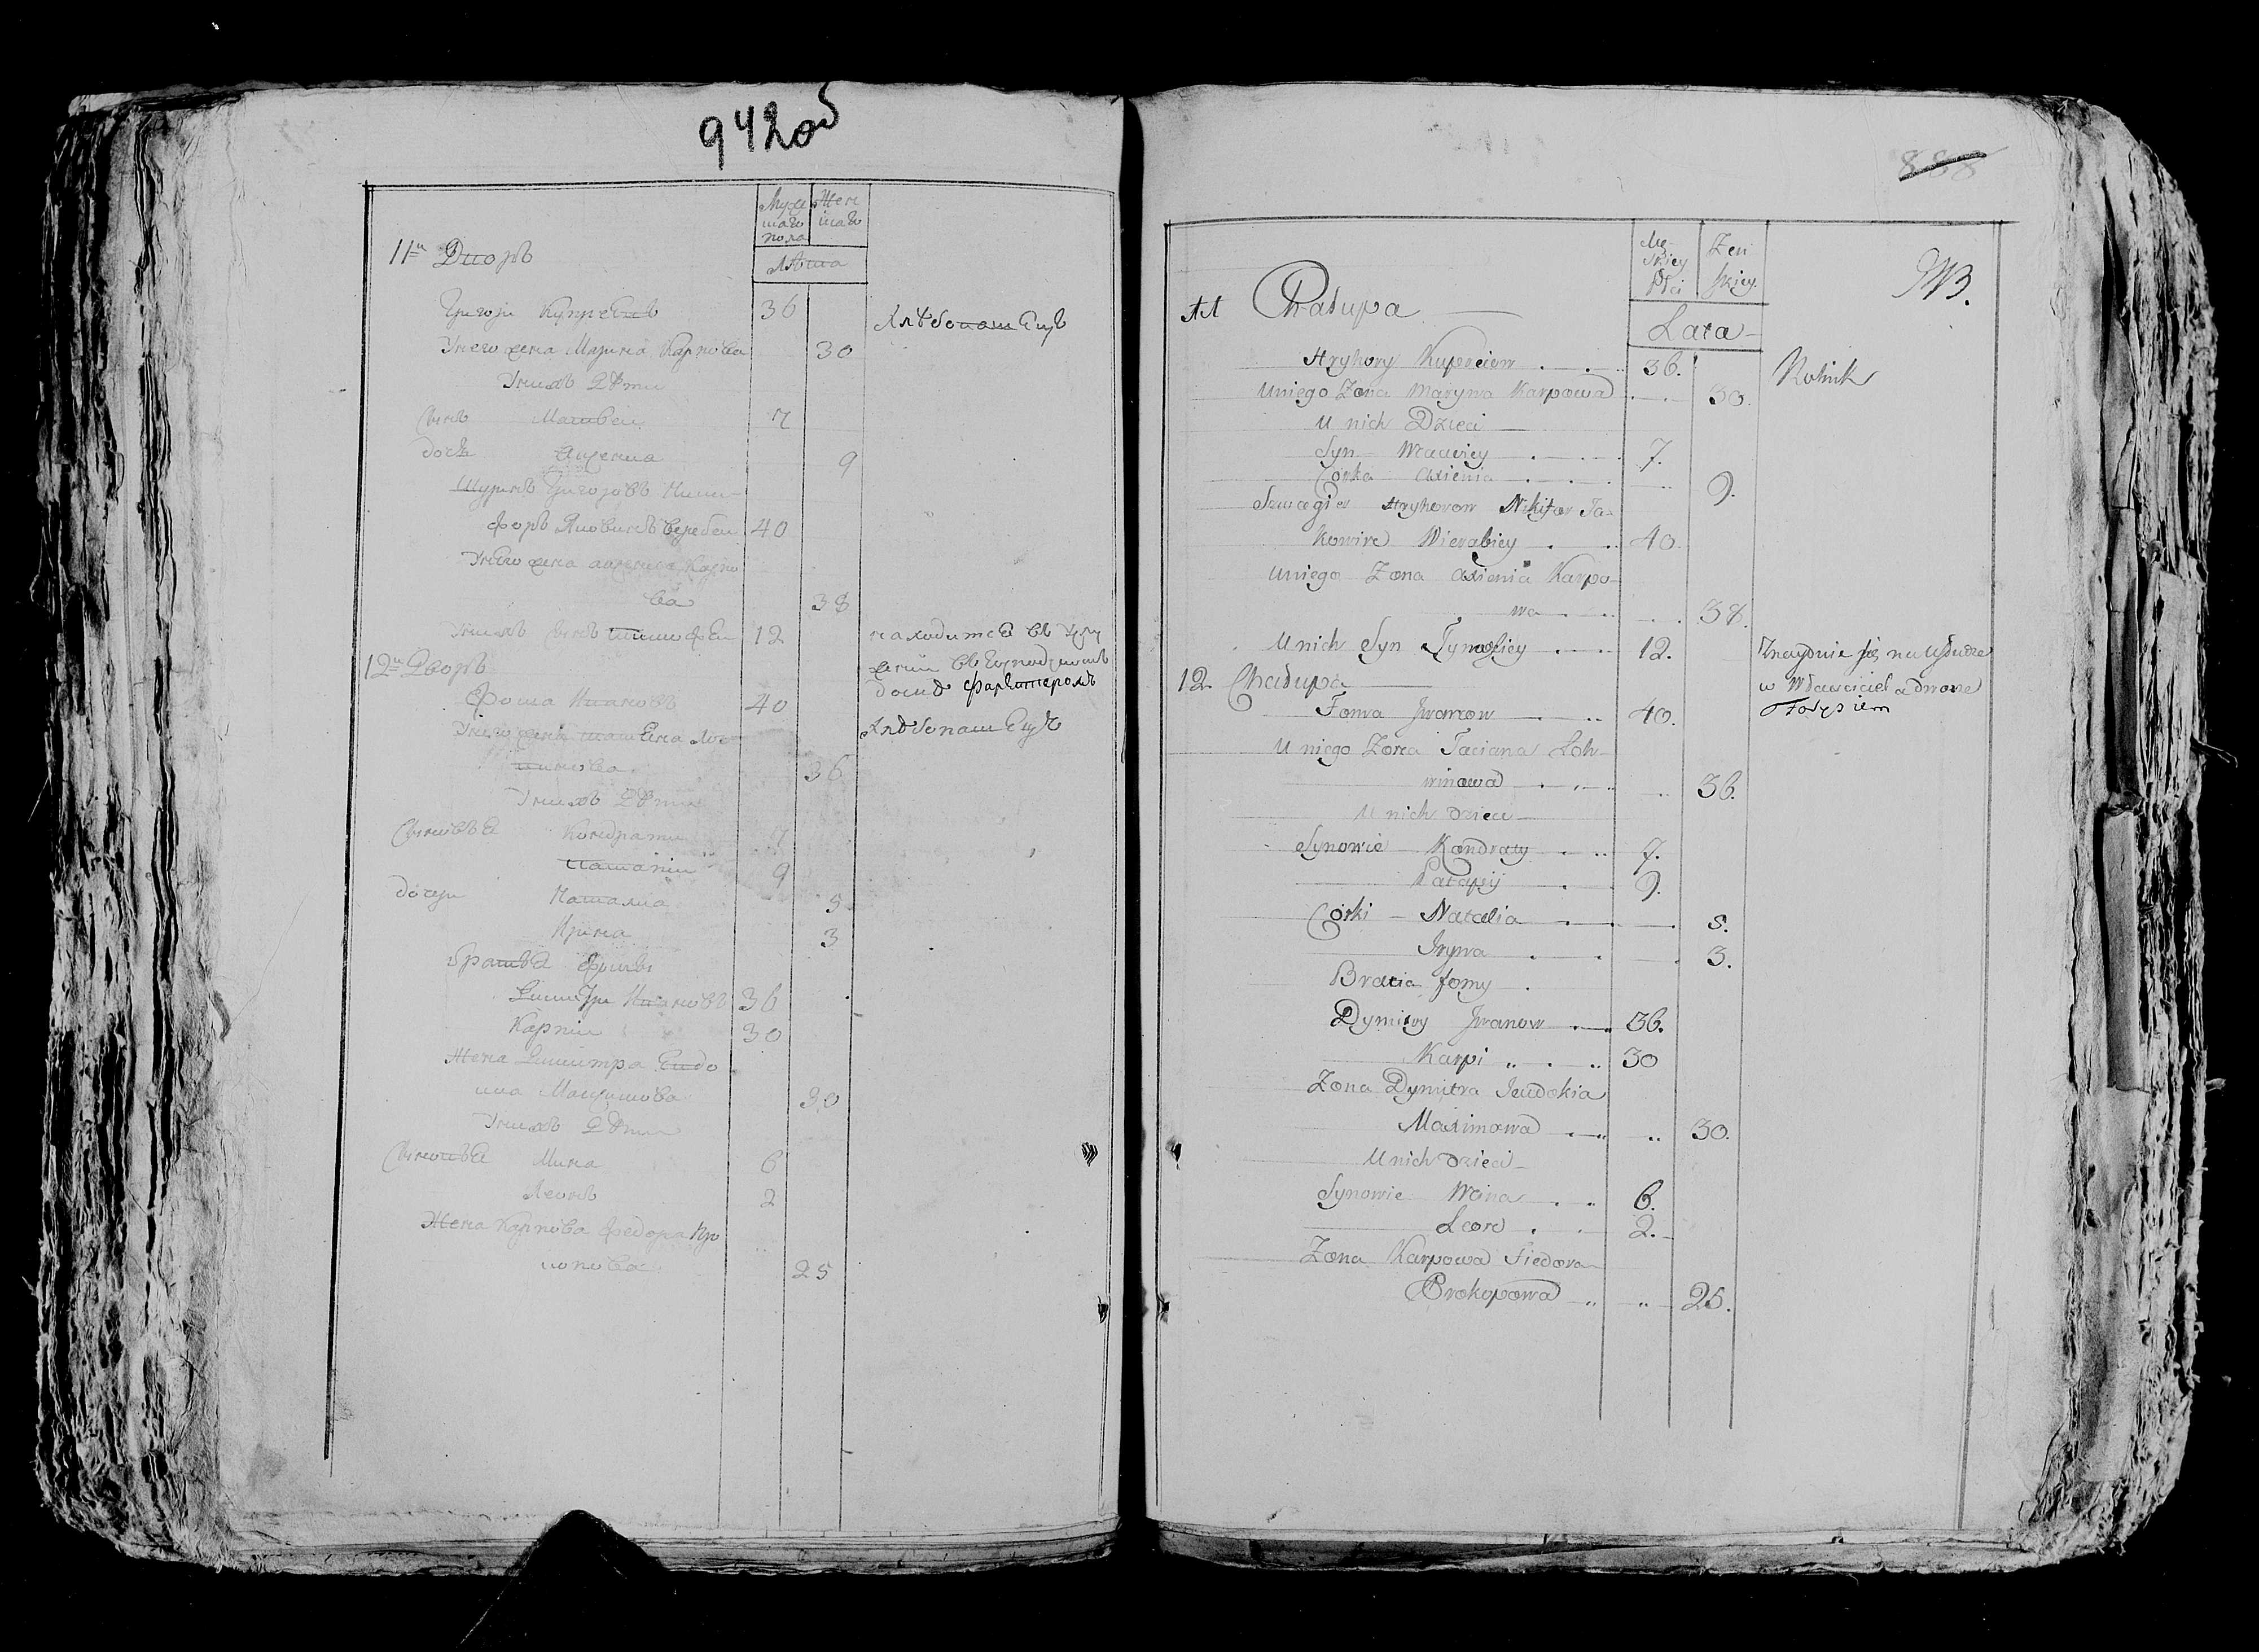 942об
Мужескаго пола
Женскаго
Лѣта
11й Дворъ
Григори Купреевъ 36 Хлѣбопашецъ
У него жена Марина Карпова 30
У нихъ Дѣти
Сынъ Матвеи 7
дочь 9
Шуринъ Григоровъ Ники-
форъ Яковинъ веребеи 40
У него жена Карпо
ва 38
У нихъ Сынъ Тимофеи 12 находится въ
12й Дворъ
Фома Ивановъ 40 Хлѣбопашецъ
У него жена татьяна Ло-
гинова 36
У нихъ Дѣти
Сыновья Кондрати 7
9
дочери Наталиа 5
Ирина 3
братья Фомы
Димитри Ивановъ 36
Карпи 30
Жена Димитра Евдо
киа Максимова 30
У нихъ Дѣти
Сыновья Мина 6
Леонъ 2
Жена Карпова федора Про
копова 25
888
Męskiey Płci
Żeńskiey
NB.
Lata
11 Chałupa
Hryhory Kupreiew 36. Rolnik
U niego Żona Maryna Karpowa 30.
U nich Dzieci
Syn Maciey 7.
Corka Axienia 9.
Szwagier Hryhorow Nikifor Ja-
kowin Wierabiey 40.
U niego Żona Axienia Karpo-
wa 38.
U nich Syn Tymofiey 12. Znayduie się na usłudze
w Właściciela dworze
12 Chałupa
Foma Iwanow 40.
U niego Żona Taciana Loh-
winowa 36.
U nich dzieci
Synowie Kondraty 7.
Patapij 9.
Corki Natalia 5.
Iryna 3.
Bracia Fomy
Dymitry Iwanow 36.
Karpi 30
Żona Dymitra Jeudokia
Maximowa 30.
U nich dzieci
Synowie Mina 6.
Leon 2.
Żona Karpowa Fiedora
Prokopowa 25.